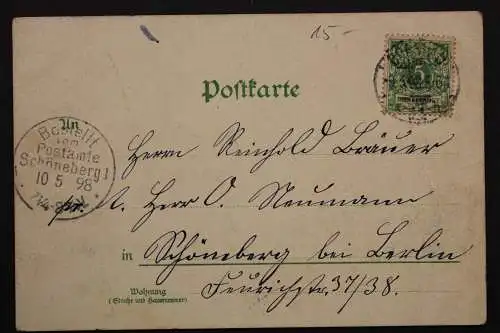 15-
5
Postkarte
An
Bestellt
vom
Postamte
Schöneberg 1
10 5 98
Herrn Reinhold Bräuer
pr. A. Herr O. Neumann
in Schöneberg bei Berlin
Wohnung
(Straße und Hausnummer)
Feurichstr. 37/38.